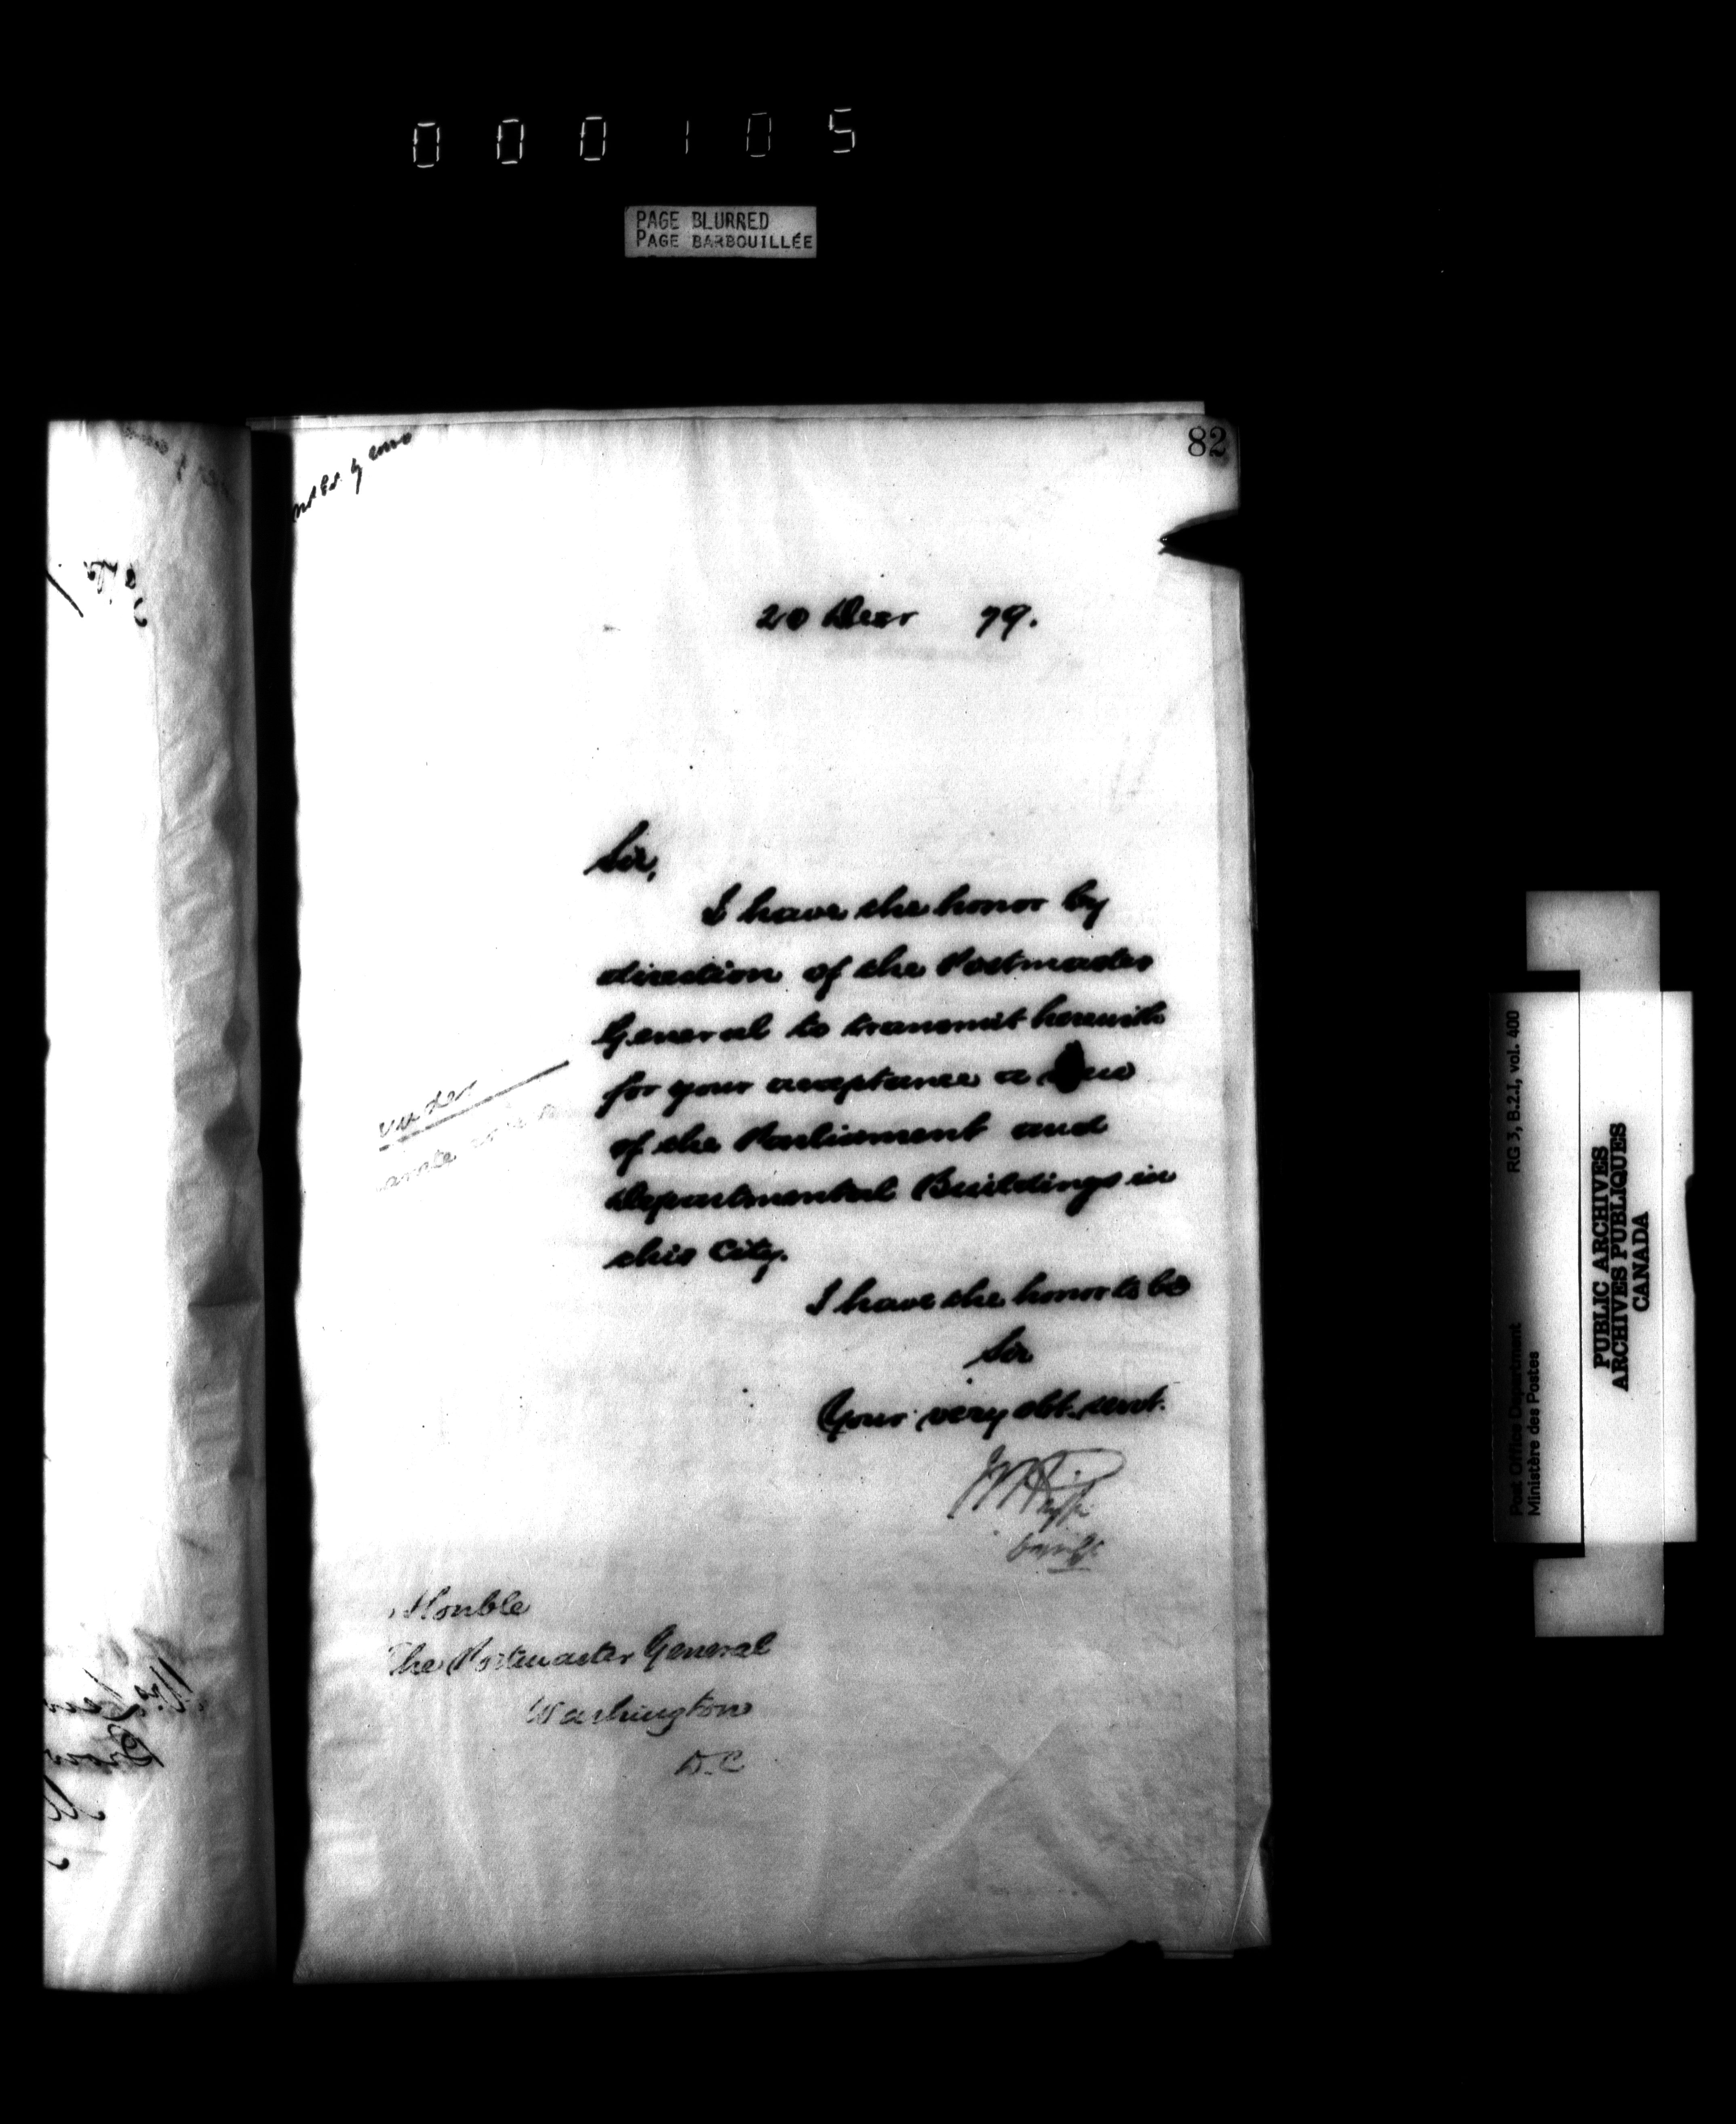 000105
PAGE BLURRED
PAGE BARBOUILLÉE
82
20 Decr 79.
Sir,
I have the honor by
direction of the Postmaster
General to transmit herewith
for your acceptance a view
of the Parliament and
Departmental Buildings in
this City.
I have the honor to be
Sir
Your very obt. servt.
Honble
The Postmaster General
Washington
D.C
under
RG 3, B.2.1, vol. 400
Post Office Department
Ministère des Postes
PUBLIC ARCHIVES
ARCHIVES PUBLIQUES
CANADA